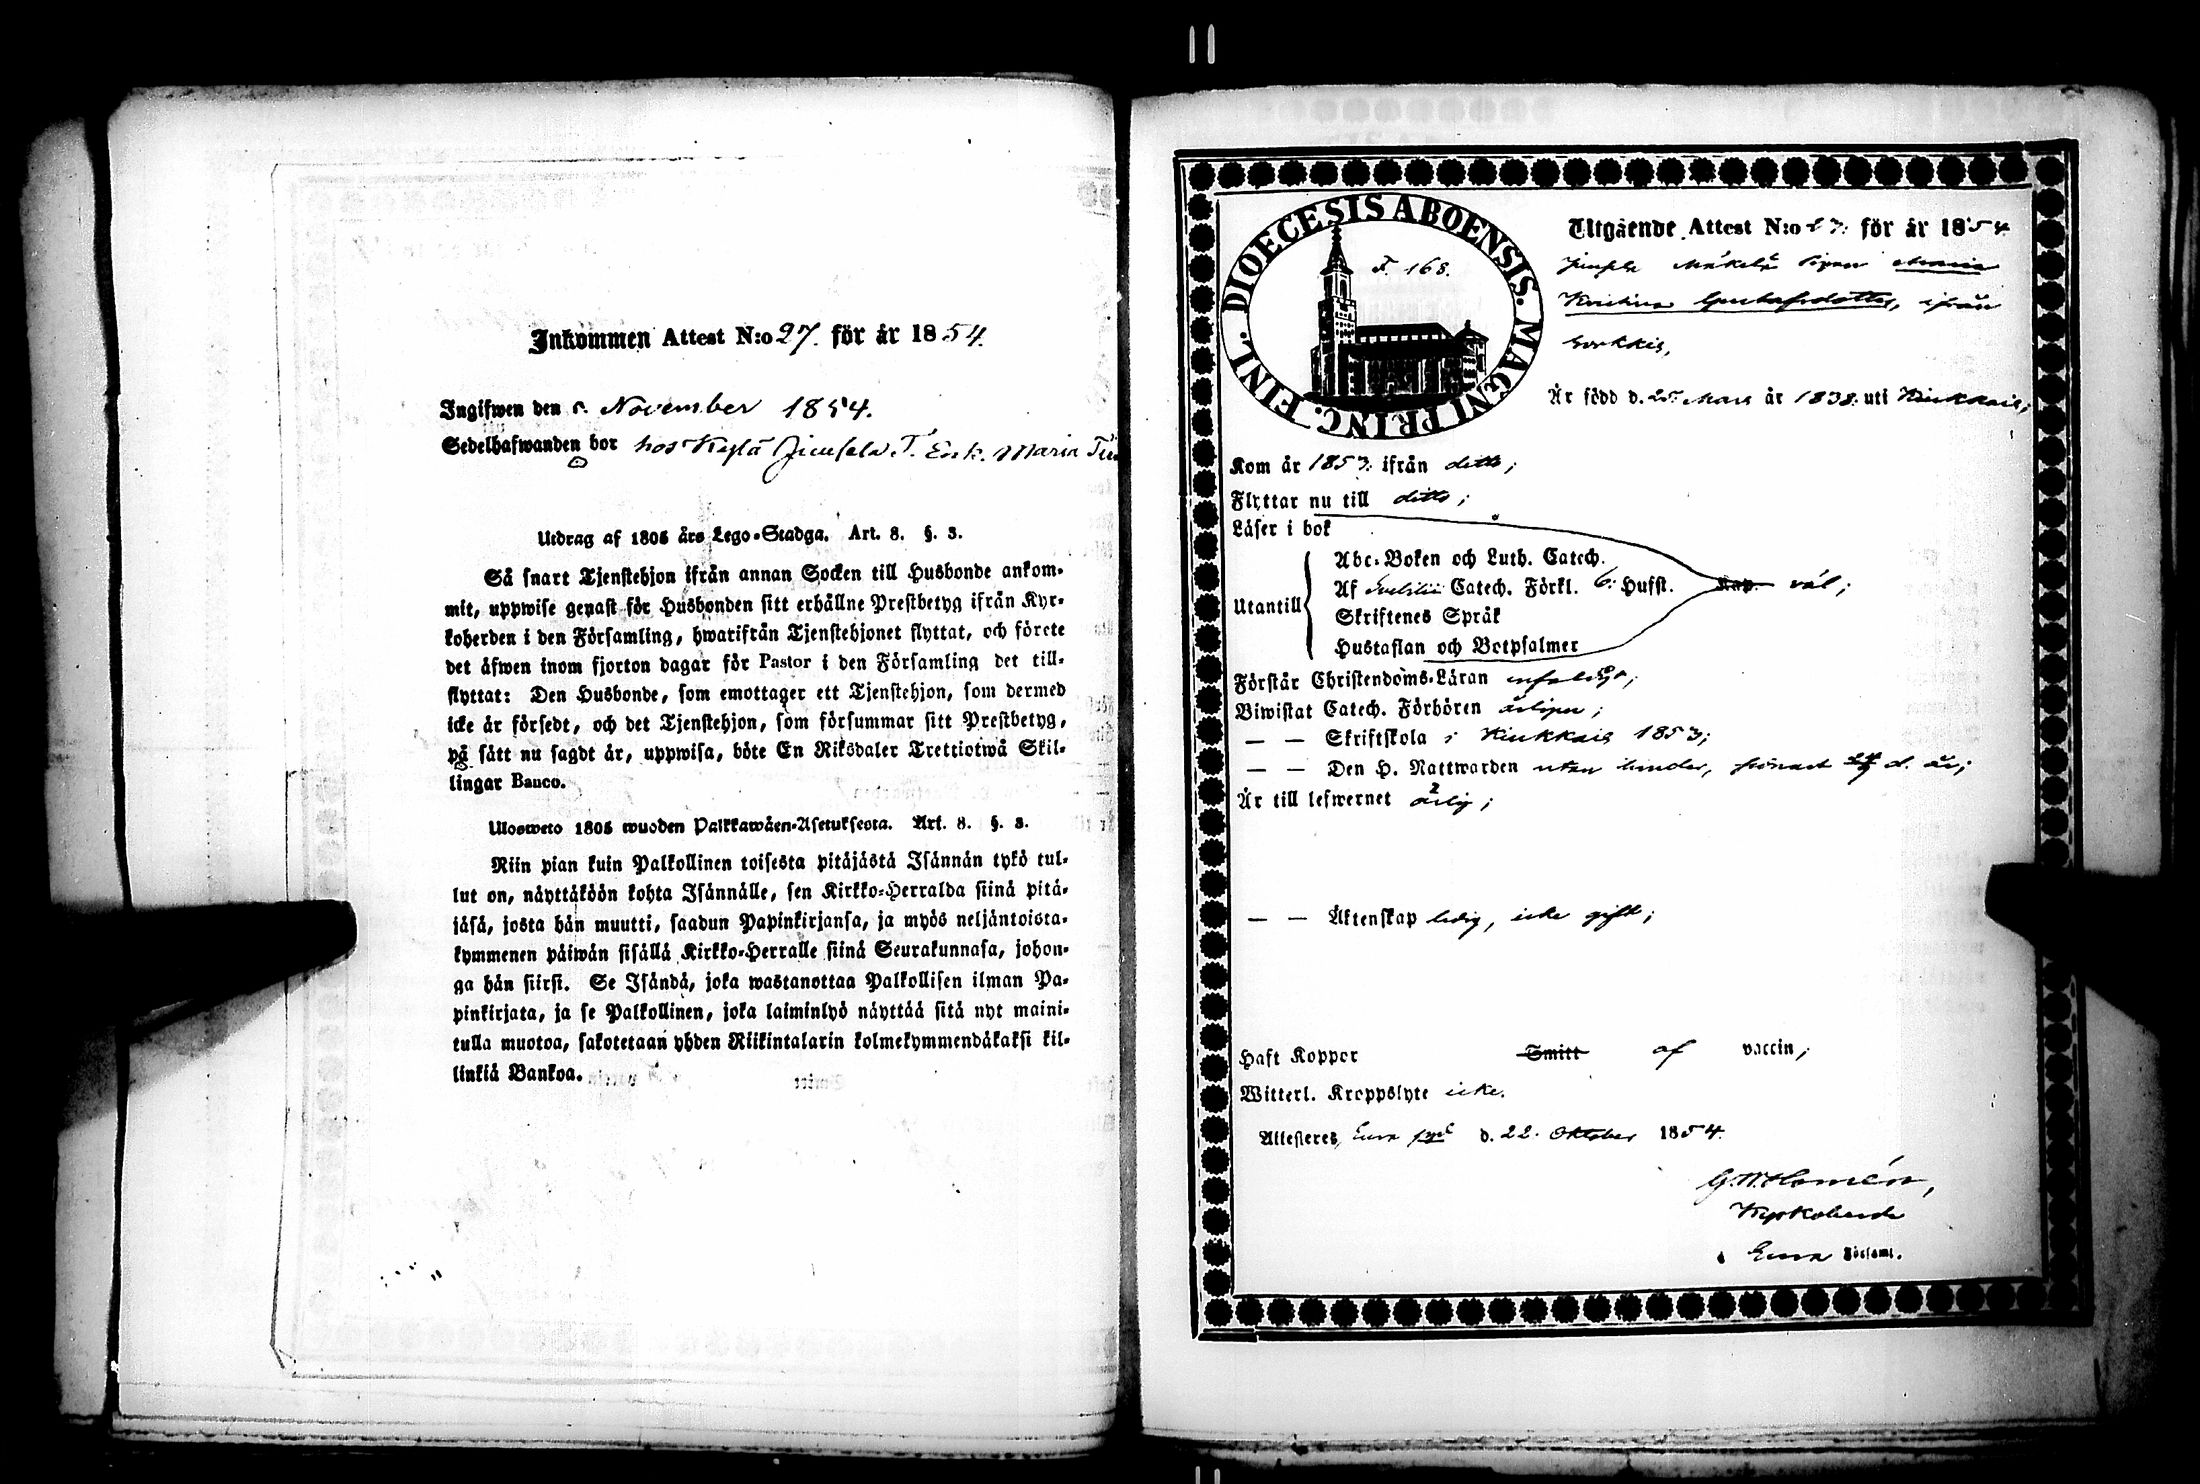 Inkommen Attest N:o 27. för år 1854.
Ingifwen den November 1854.
Sedelhafwanden bor hos Enk. Maria
Utdrag af 1805 års Lego-Stadga. Art. 8. §. 3.
Så snart Tjenstehjon ifrån annan Socken till Husbonde ankom-
mit, uppwise genast för Husbonden sitt erhållne Prestbetyg ifrån Kyr-
koherden i den Församling, hwarifrån Tjenstehjonet flyttat, och förete
det äfwen inom fjorton dagar för Pastor i den Församling det till-
flyttat: Den Husbonde, som emottager ett Tjenstehjon, som dermed
icke är försedt, och det Tjenstehjon, som försummar sitt Prestbetyg,
på sätt nu sagdt är, uppwisa, böte En Riksdaler Trettiotwå Skil-
lingar Banco.
Ulosweto 1805 wuoden Palkkawäen-Asetuksesta. Art. 8. §. 3.
Niin pian kuin Palkollinen toisesta pitäjästä Isännän tykö tul-
lut on, näyttäköön kohta Isännälle, sen Kirkko-Herralda siinä pitä-
jäsä, josta hän muutti, saadun Papinkirjansa, ja myös neljäntoista-
kymmenen päiwän sisällä Kirkko-Herralle siinä Seurakunnasa, johon-
ga hän siirsi. Se Isändä, joka wastanottaa Palkollisen ilman Pa-
pinkirjata, ja se Palkollinen, joka laiminlyö näyttää sitä nyt maini-
tulla muotoa, sakotetaan yhden Riikintalarin kolmekymmendäkaksi kil-
linkiä Bankoa.
DIOECESIS ABOENSIS. MAGNI PRINC. FINL.
F. 168.
Utgående Attest N:o 27. för år 1854
Mäkelä Pigan Maria
Kristina Gustafsdotter, ifrån
Är född d. 25 Mars år 1838. uti Kiukkais;
Kom år 1853. ifrån ditto;
Flyttar nu till ditto;
Läser i bok
Abc-Boken och Luth. Catech.
Utantill Af Svebilii Catech. Förkl. 6. Husst. väl;
Skriftenes Språk
Hustaflan och Botpsalmer
Förstår Christendoms-Läran enfaldigt;
Biwistat Catech. Förhören årligen;
— — Skriftskola i Kiukkais 1853;
— — Den H. Nattwarden utan hinder, d. år;
Är till lefwernet ärlig;
— — Äktenskap ledig, icke gift;
Haft Koppor Smitt af vaccin;
Witterl. Kroppslyte icke.
Attesteres, Eura d. 22. Oktober 1854.
G. W. Homén,
Kyrkoherde
i Eura Församl.